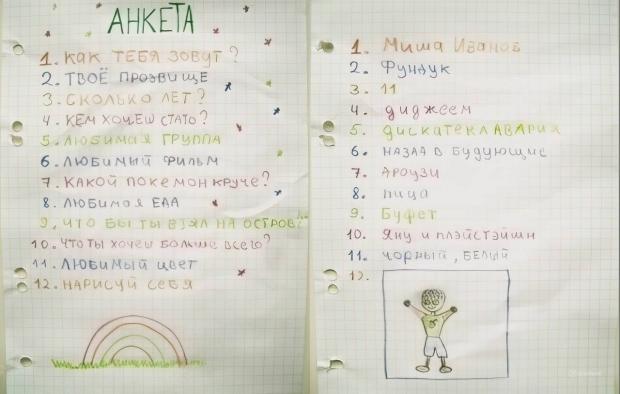 АНКЕТА
1. КАК ТЕБЯ ЗОВУТ?
2. ТВОЁ ПРОЗВИЩЕ
3. СКОЛЬКО ЛЕТ?
4. КЕМ ХОЧЕШ СТАТО?
5. ЛЮБИМАЯ ГРУППА
6. ЛЮБИМЫЙ ФИЛЬМ
7. КАКОЙ ПОКЕМОН КРУЧЕ?
8. ЛЮБИМАЯ ЕДА
9. ЧТО БЫ ТЫ ВЗЯЛ НА ОСТРОВ?
10. ЧТО ТЫ ХОЧЕШ БОЛЬШЕ ВСЕГО?
11. ЛЮБИМЫЙ ЦВЕТ
12. НАРИСУЙ СЕБЯ
1. Миша Иванов
2. Фундук
3. 11
4. диджеем
5. дискатека АВАРИЯ
6. НАЗАД В будующие
7. Ароузи
8. пица
9. Буфет
10. Яну и плэйстэйшн
11. чорный, БЕЛЫЙ
12.